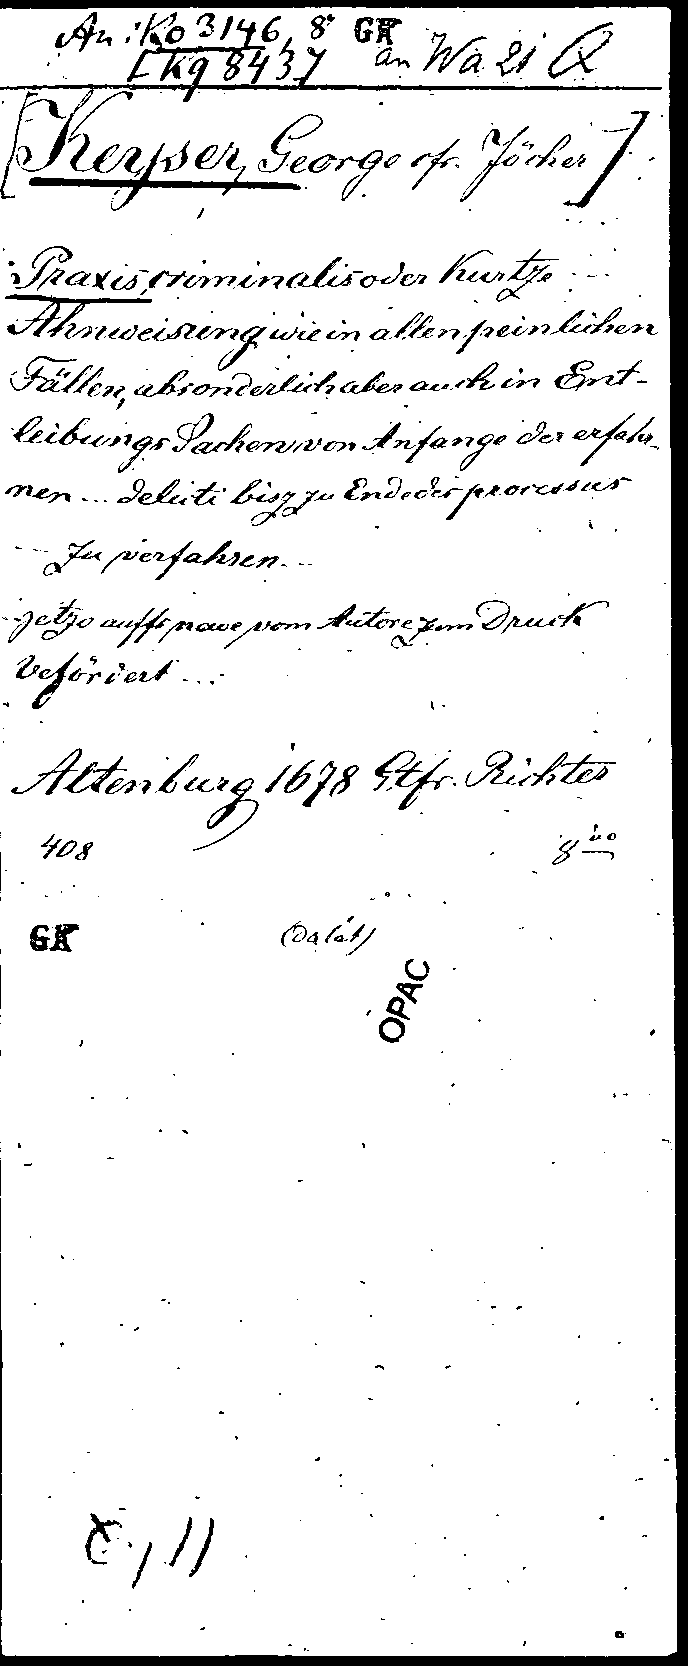 An: Ko 3146, 8° GK
Kg 8437 an Wa 21 Q
[Keyser, George cfr. Jöcher]
Praxis criminalis oder Kurtze ...
Ahnweisung, wie in allen peinlichen
Fällen, absonderlich aber auch in Ent-
leibungs Sachen von Anfange der erfahr-
nen ... delicti bisz zu Ende des processus
... zu verfahren ...
jetzo auffs naue vom Autore zum Druck
befördert ...
Altenburg 1678 Gtfr. Richter
408 8vo
GK
OPAC